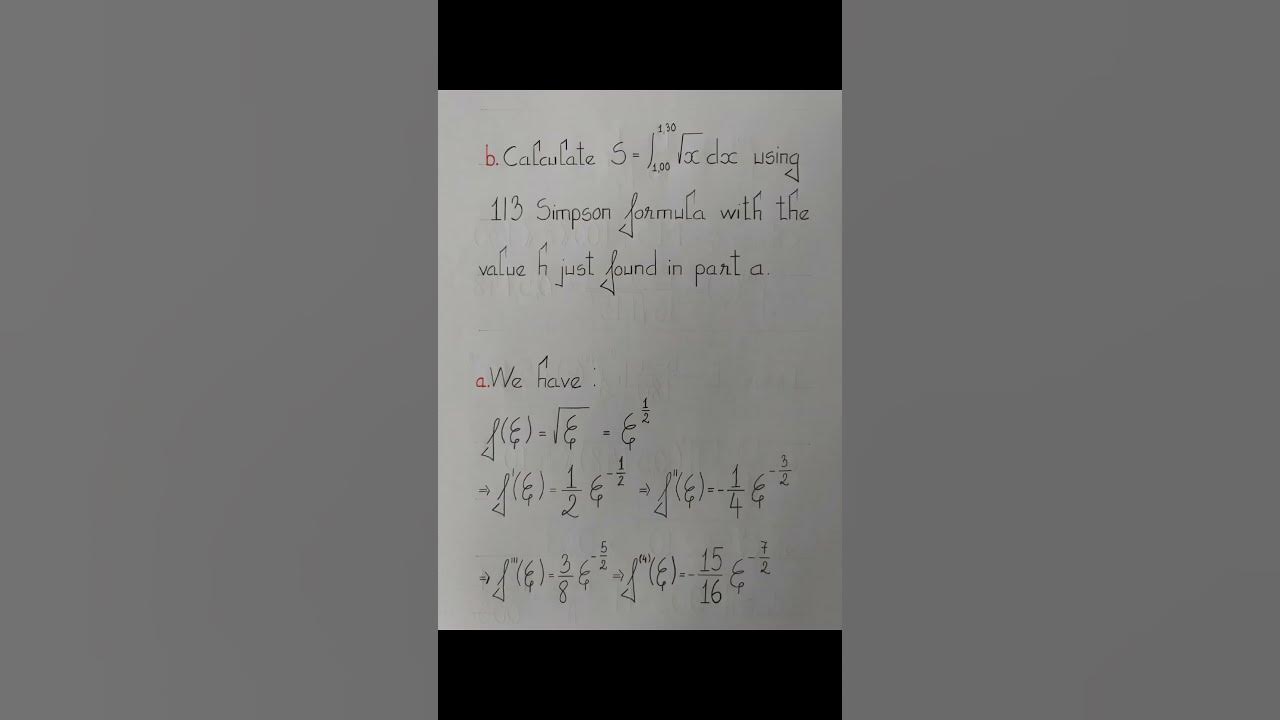 b. Calculate S = ∫₁,₀₀^1,30 √x dx using
1/3 Simpson formula with the
value h just found in part a.
a. We have :
f(ξ) = √ξ = ξ^(1/2)
⇒ f'(ξ) = 1/2 ξ^(-1/2) ⇒ f''(ξ) = -1/4 ξ^(-3/2)
⇒ f'''(ξ) = 3/8 ξ^(-5/2) ⇒ f^(4)(ξ) = -15/16 ξ^(-7/2)